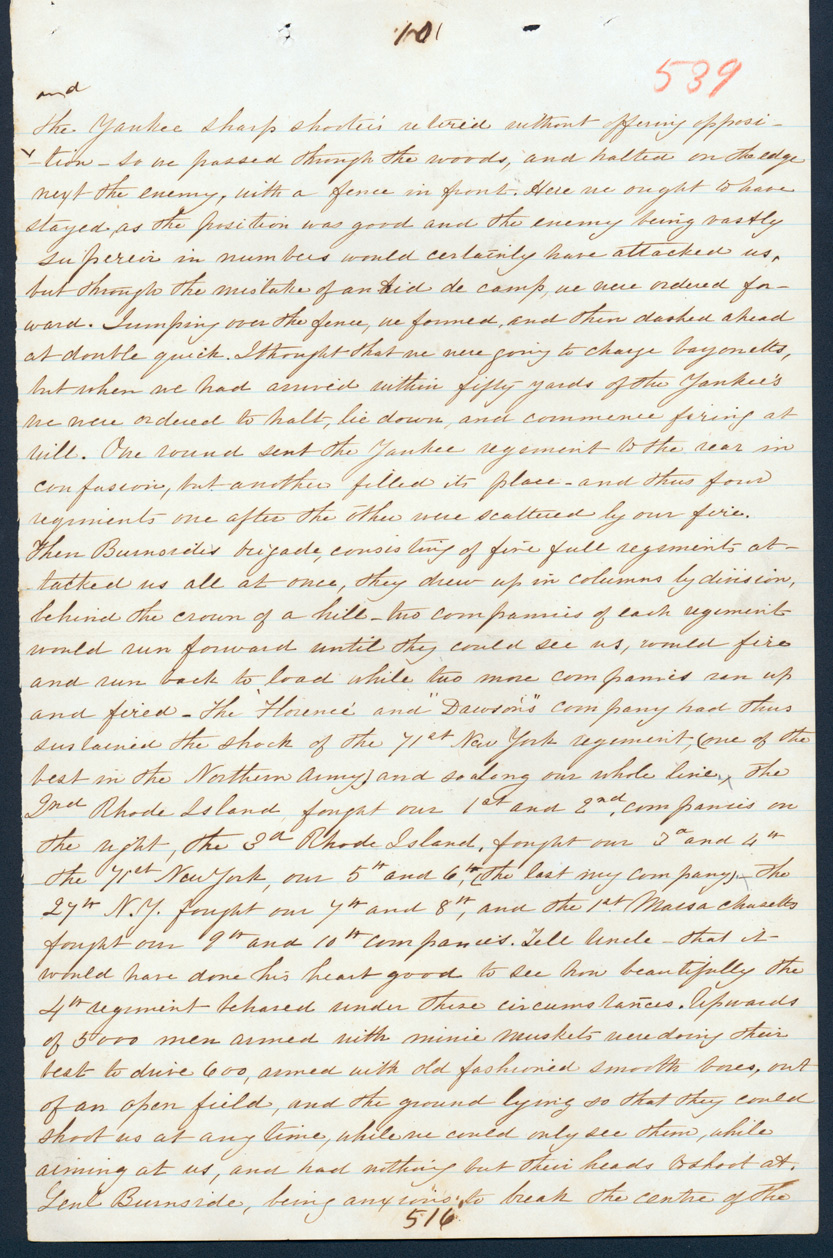 101
539
and
the Yankee sharp shooters retired without offering opposi-
-tion - so we passed through the woods, and halted on the edge
next the enemy, with a fence in front. Here we ought to have
stayed, as the position was good and the enemy being vastly
superior in numbers would certainly have attacked us,
but through the mistake of an Aid de camp, we were ordered for-
ward. Jumping over the fence, we formed, and then dashed ahead
at double quick. I thought that we were going to charge bayonetts,
but when we had arrived within fifty yards of the Yankee's
we were ordered to halt, lie down, and commence firing at
will. One round sent the Yankee regiment to the rear in
confusion, but another filled its place - and thus four
regiments one after the other were scattered by our fire.
Then Burnside's brigade, consisting of five full regiments at-
tacked us all at once, they drew up in columns by division,
behind the crown of a hill - two companies of each regiment
would run forward until they could see us, would fire
and run back to load while two more companies ran up
and fired - The "Florence" and "Dawson's" company had thus
sustained the shock of the 71st New York regiment, (one of the
best in the Northern Army) and so along our whole line. x The
2nd Rhode Island, fought our 1st and 2nd, companies on
the right, the 3d Rhode Island, fought our 3d and 4th
the 71st New York, our 5th and 6th, (The last my company) - the
27th N.Y. fought our 7th and 8th, and the 1st Massachusetts
fought our 9th and 10th companies. Tell Uncle - that it
would have done his heart good to see how beautifully the
4th regiment behaved under these circumstances. Upwards
of 5000 men armed with minie muskets were doing their
best to drive 600, armed with old fashioned smooth bores, out
of an open field, and the ground lying so that they could
shoot us at any time, while we could only see them, while
aiming at us, and had nothing but their heads to shoot at.
Genl Burnside, being anxious to break the centre of the
516